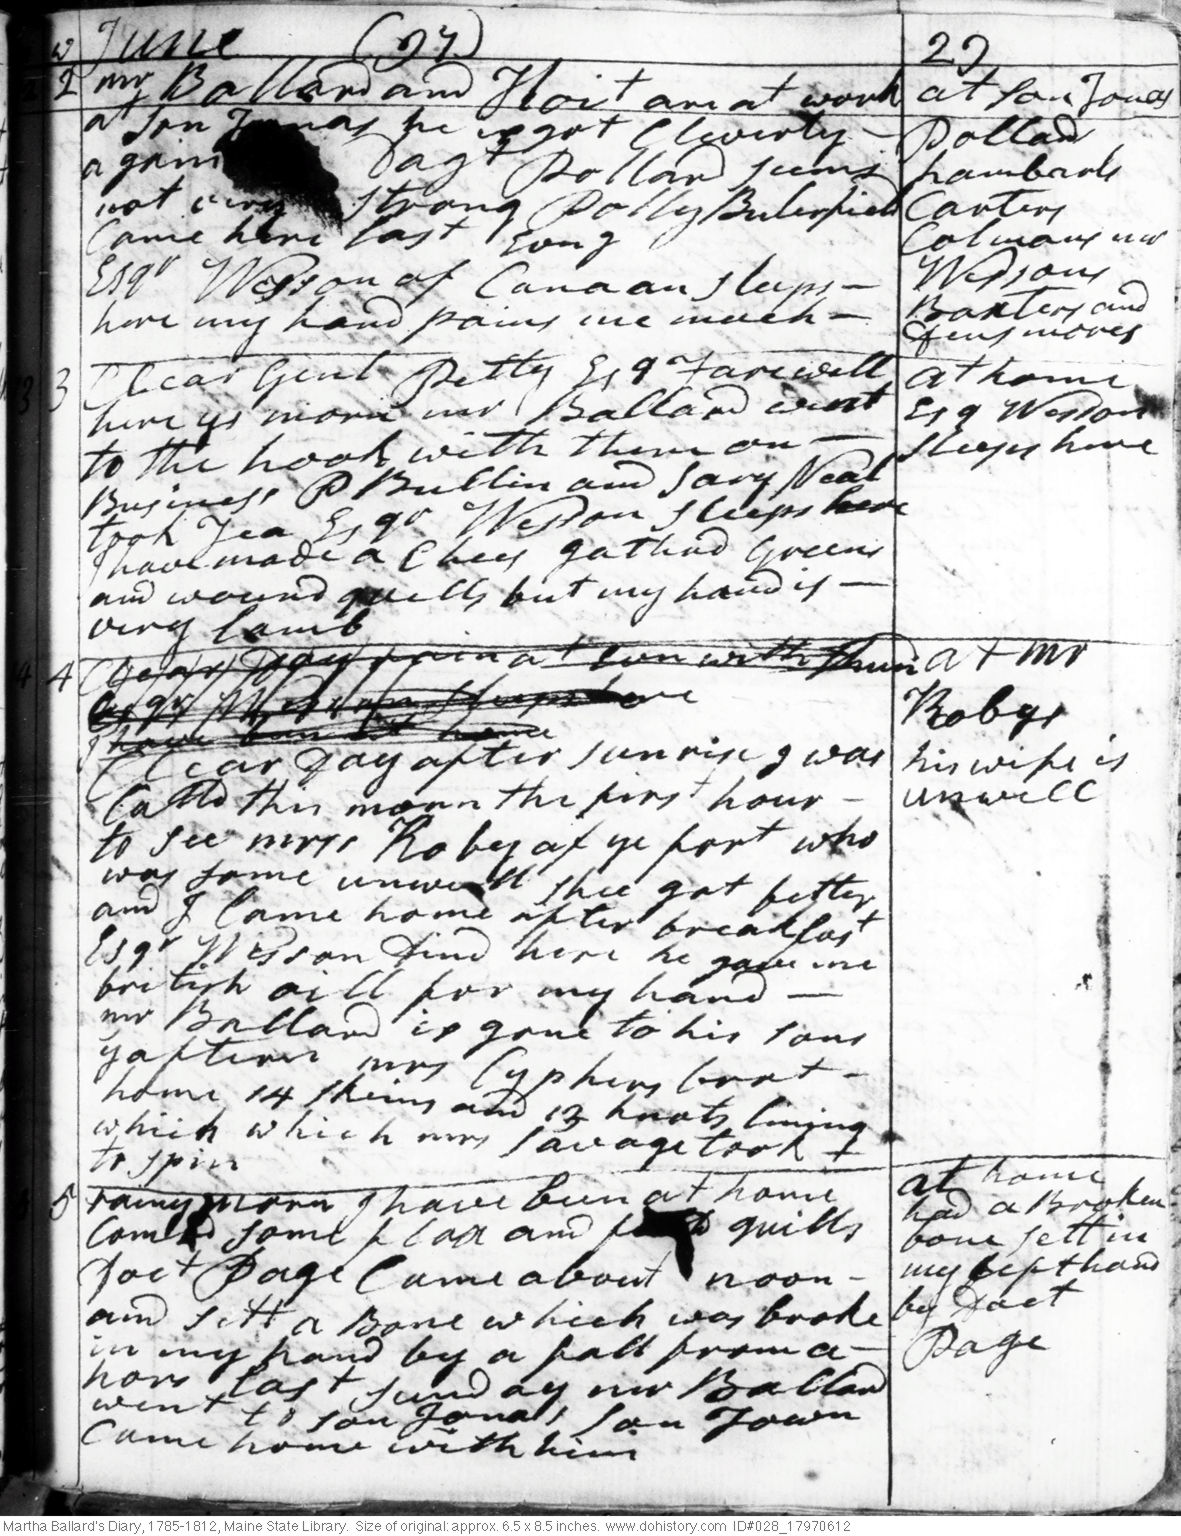 June (27) 27
2 mr Ballard and Hoit are at work
at son Jonas he is got Cleverly –
again Dagt Pollard seems
not very strong Dolly Buterfield
Came here last Evng
Esqr Wesson of Canaan sleeps –
here my hand pains me much –
at son Jonas
Pollard
hambards
Carters
Colmans mr
Wessons
Baxters and
Densmores
3 Clear Genl Petty Esq Farewell
here ys morn mr Ballard went
to the hook with them on –
Business P Bullin and Sary Neal
took Tea Esqr Wesson sleeps here
I have made a Chees gathrd Greens
and wound quills but my hand is –
very lamb
at home
Esq Wesson
sleeps here
4 Clear Day rain at son with
Esqr Wesson sleeps here
I have been at home
Clear Day after sunrise I was
Calld this morn the first hour –
to see mrss Roby at ye fort who
was some unwell shee got better
and I Came home after breakfast
Esqr Wesson dind here he gave me
british oill for my hand –
mr Ballard is gone to his sons
ys aftern mrs Cyphers brot –
home 14 skeins and 13 knots lining
which which mrs savage took
to spin
at mr
Robys
his wife is
unwell
5 rainy morn I have been at home
Combd some flax and quills
Doct Page Came about noon –
and sett a Bone which was broke
in my hand by a fall from a –
hors last sunday mr Ballard
went to son Jonas son Town
Came home with him
at home
had a Broken
bone sett in
my left hand
by Doct
Page
Martha Ballard's Diary, 1785-1812, Maine State Library. Size of original: approx. 6.5 x 8.5 inches. www.dohistory.com ID#028_17970612